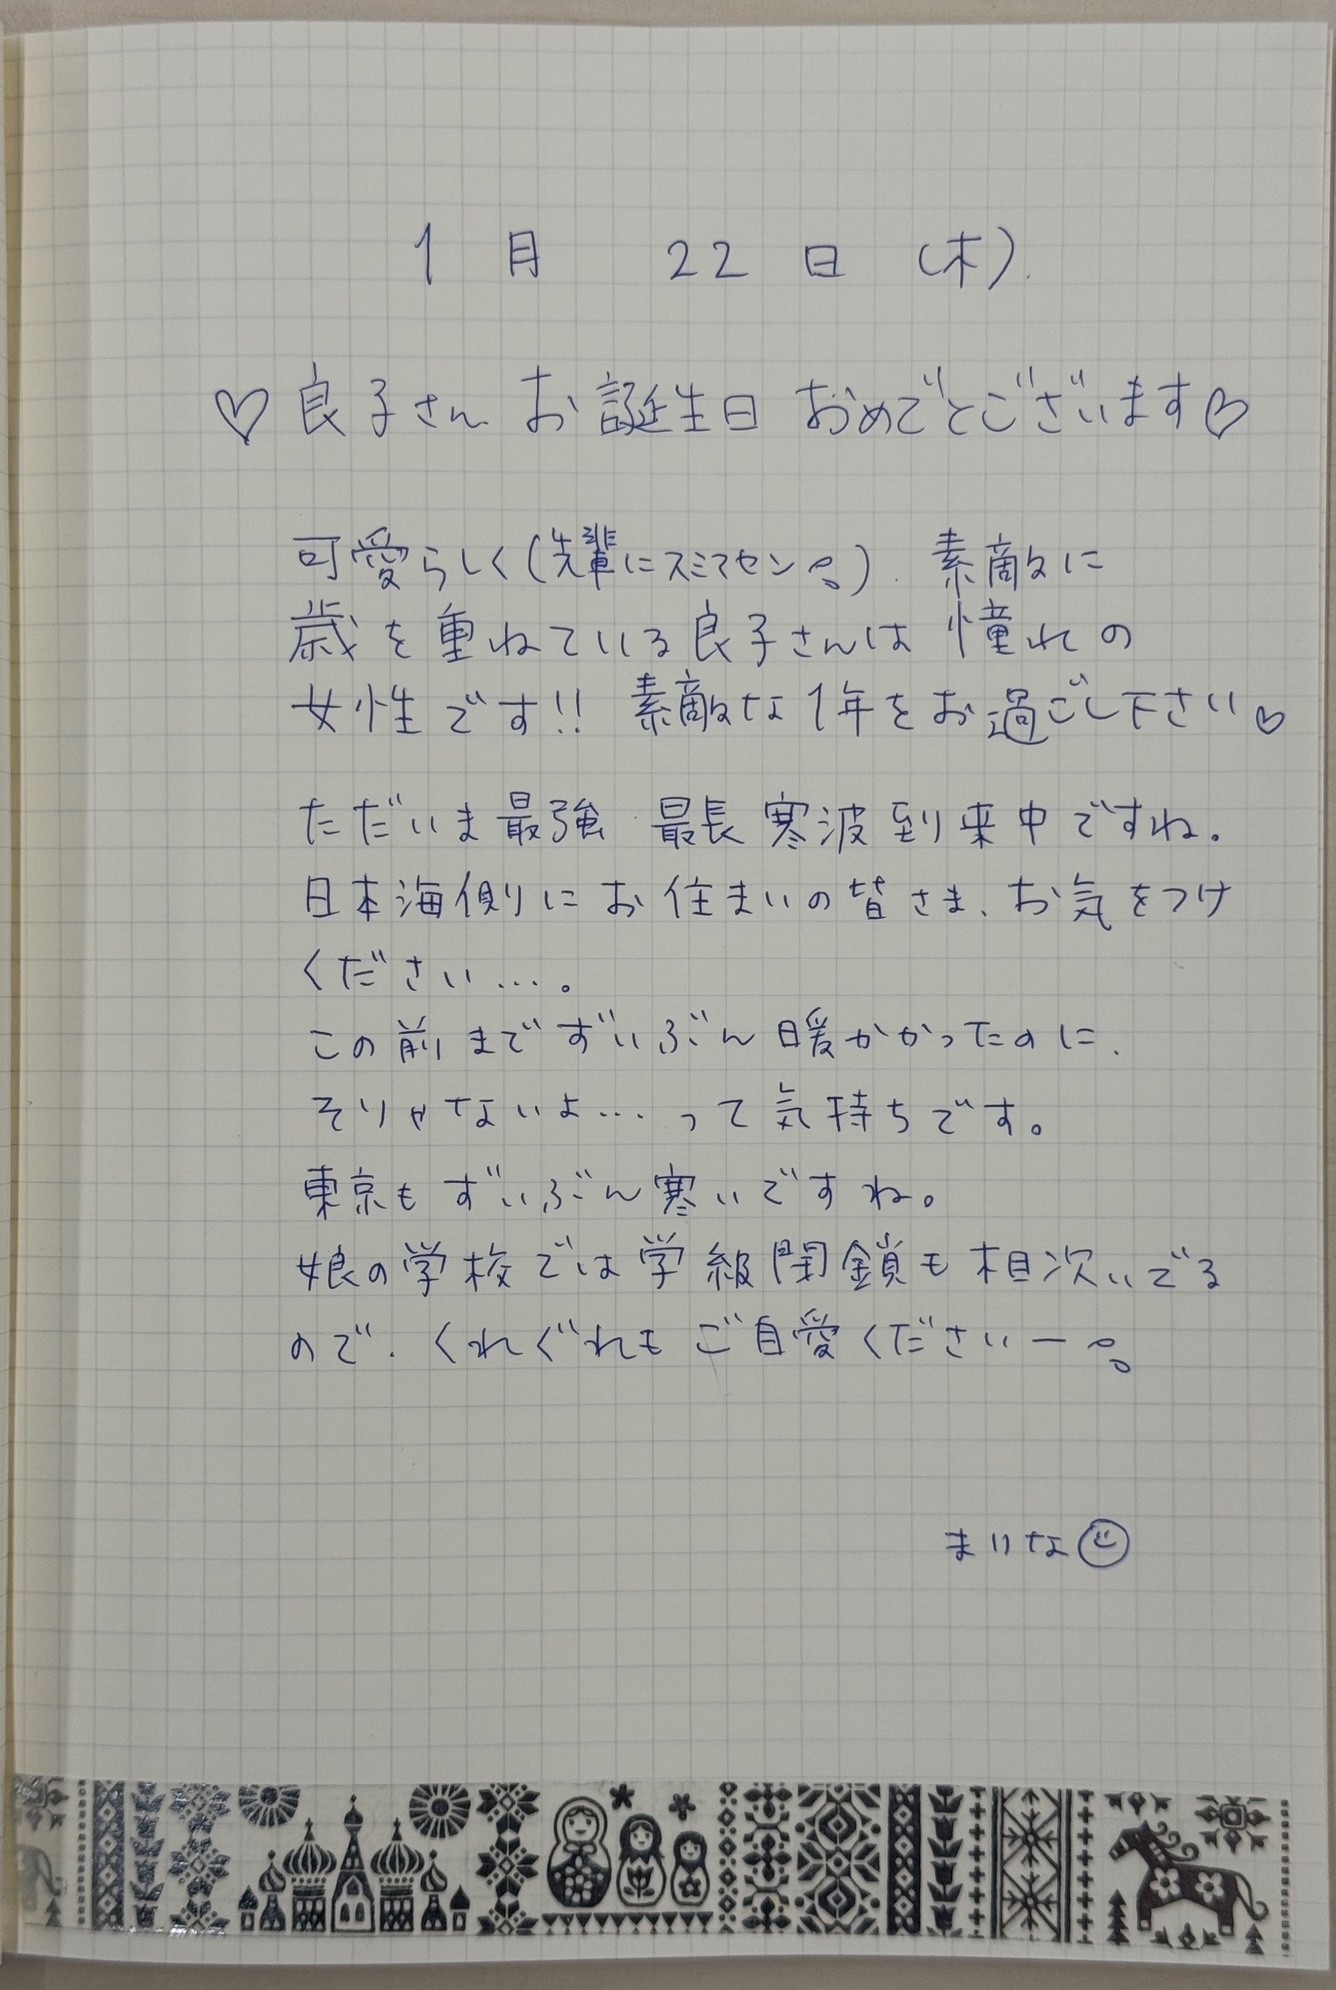 1月 22日 (木).
♡良子さん お誕生日 おめでとございます♡
可愛らしく(先輩にスミマセン💦). 素敵に
歳を重ねている良子さんは 憧れの
女性です!! 素敵な1年をお過ごし下さい♡
ただいま最強 最長寒波到来中ですね。
日本海側にお住まいの皆さま、お気をつけ
ください…。
この前までずいぶん暖かかったのに、
そりゃないよ…って気持ちです。
東京もずいぶん寒いですね。
娘の学校では学級閉鎖も相次いでる
ので、くれぐれもご自愛くださいー💦
まりな☺